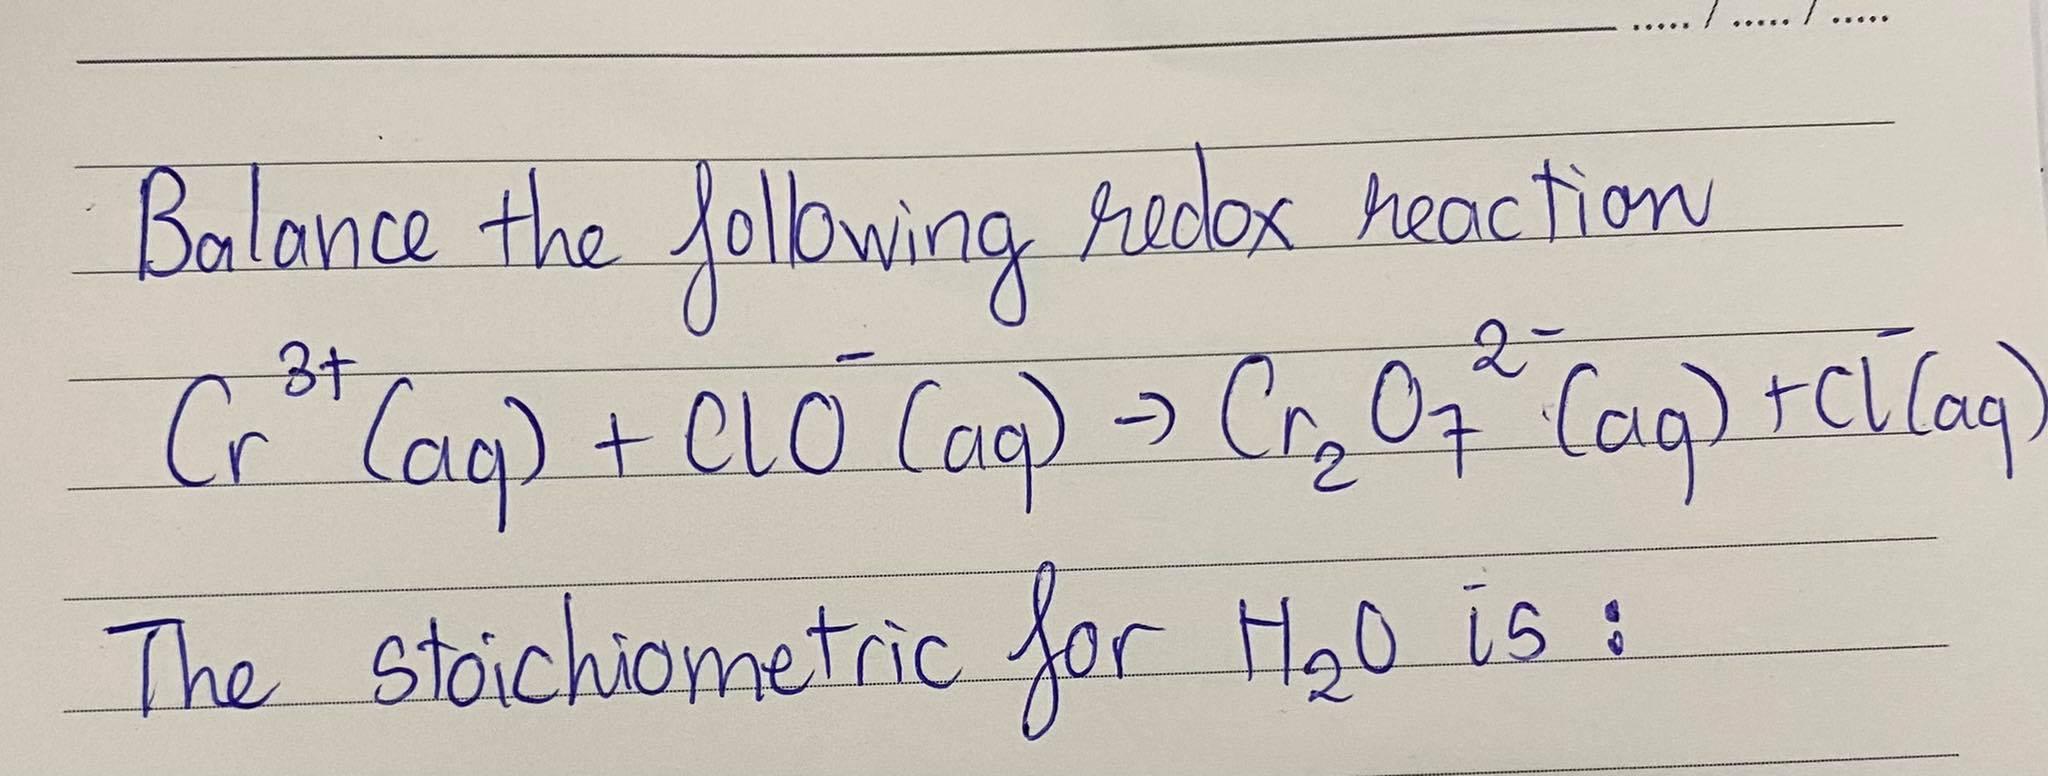 ...... / ...... / ......
Balance the following redox reaction
Cr³⁺ (aq) + ClO⁻ (aq) → Cr₂O₇²⁻ (aq) + Cl⁻ (aq)
The stoichiometric for H₂O is :